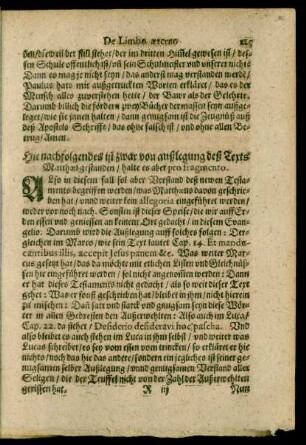 De Limbo æterno
den/dieweil der still stehet/der im dritten Himel gewesen ist/des-
sen Schule offentlich ist/vñ sein Schulmeister vnd vnserer nicht:
Dann es mag je nicht seyn/das anderst mag verstanden werdē/
Paulus hats mit außgetruckten Worten erkläret/das es der
Mensch alles zuverstehen hette/der Bawr als der Gelehrte.
Darumb billich die fördern zwey Bücher dermassen seyn außge-
leget/wie sie jnnen halten/vnd darumb ist die Zeugnüß auß
deß Apostels Schrifft/das ohne falsch ist/vnd ohne allen Be-
trug/Amen.
Hie nachfolgendes ist zwar von außlegung deß Texts
Matthæi gestanden/halte es aber pro fragmento.
Also in diesem fall sol aber Verstand deß newen Testa-
ments begriffen werden/was Matthæus davon geschrie-
ben hat/vnnd weiter kein allegoria eingeführt werden/
weder vor noch nach. Sonsten ist dieser Speise/die wir auff Er-
den essen vnd geniessen an keinem Ort gedacht/in diesem Evan-
gelio. Darumb wird die Außlegung auff solches folgen: Der-
gleichen im Marco/wie sein Text lautet Cap. 14. Et mandu-
cantibus illis, accepit Jesus panem &c. Was weiter Mar-
cus gesetzt hat/das da möchte mit etlichen Listen vnd Gleichnüs-
sen hie eingeführet werden/sol nicht angenommen werden: Dann
er hat dieses Testaments nicht gedacht/als so weit dieser Text
gehet: Was er sonst geschrieben hat/bleibet in jhm/wird nicht hie-
rein müssen: Daß starr vnd starck vnd gnugsam seyn diese Wör-
ter in allen Gebresten den Außerwehlten: Also auch im Luca/
Cap. 22. da stehet/Desiderio desideravi hoc pascha. Vnd
also bleibet es auch im Luca in jhm selbst/vnd weiter was
Lucas schreibet/es sey vom essen vom trincken/so erkläret er hie
nichts/noch das hie das ander/sondern ein jegliches ist seiner ge-
nugsamen selber Außlegung/vnnd genugsamen Verstand aller
Seligen/die der Teuffel nicht von der Zahl der Außerwehlten
gerissen hat.
R iij
Nun